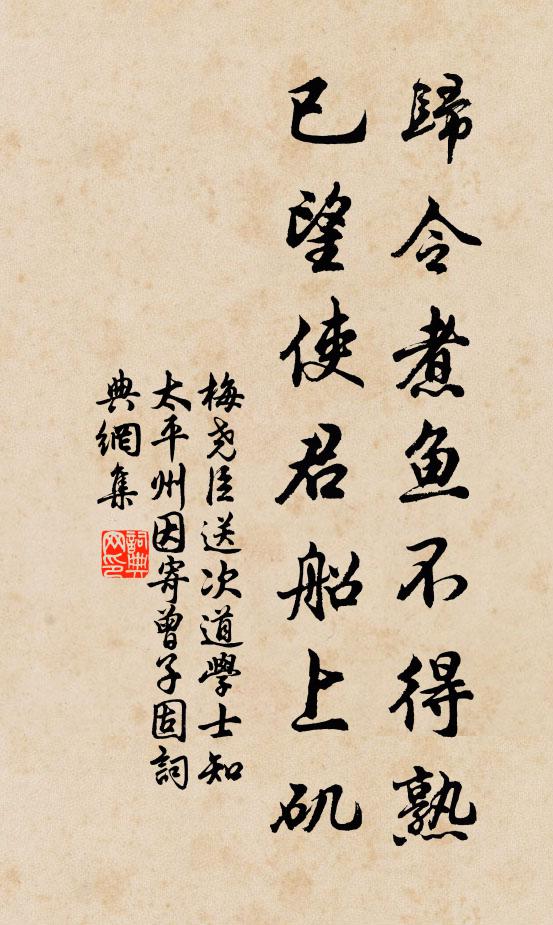 歸令煮魚不得熟
已望使君船上矶
梅尧臣送次道學士知
太平州因寄曾子固詞
典網集
詞典网印